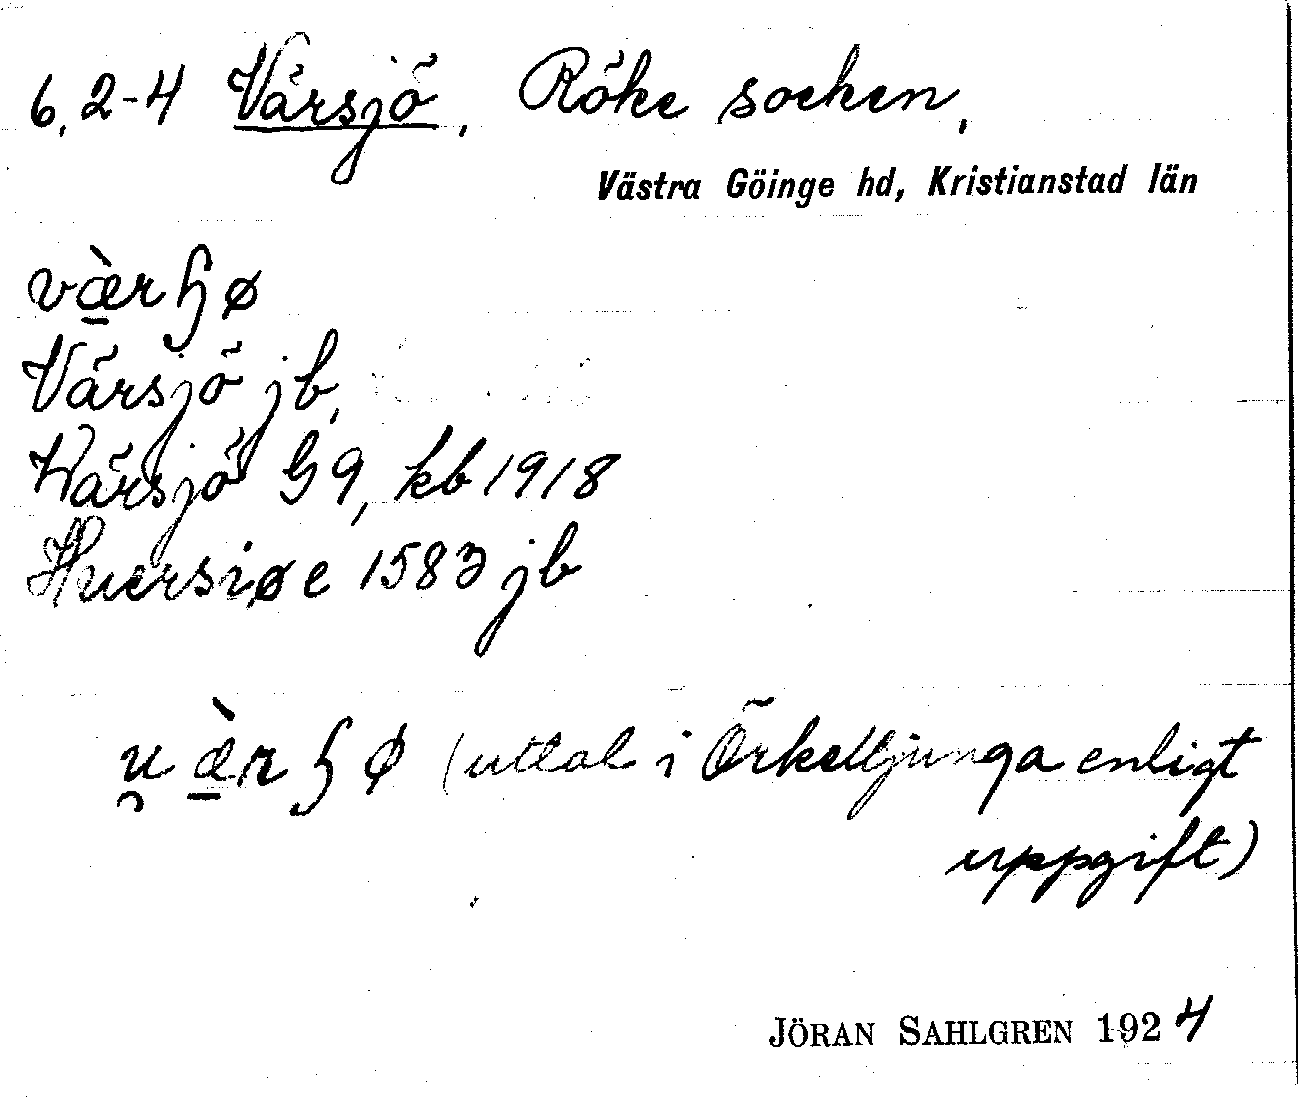 6,2-4 Värsjö, Röke socken,
Västra Göinge hd, Kristianstad län
væ̀rɧø
Värsjö jb,
Wärsjö G9, kb 1918
Huersiøe 1583 jb
u̯æ̀rɧø (uttal i Örkelljunga enligt
uppgift)
JÖRAN SAHLGREN 1924